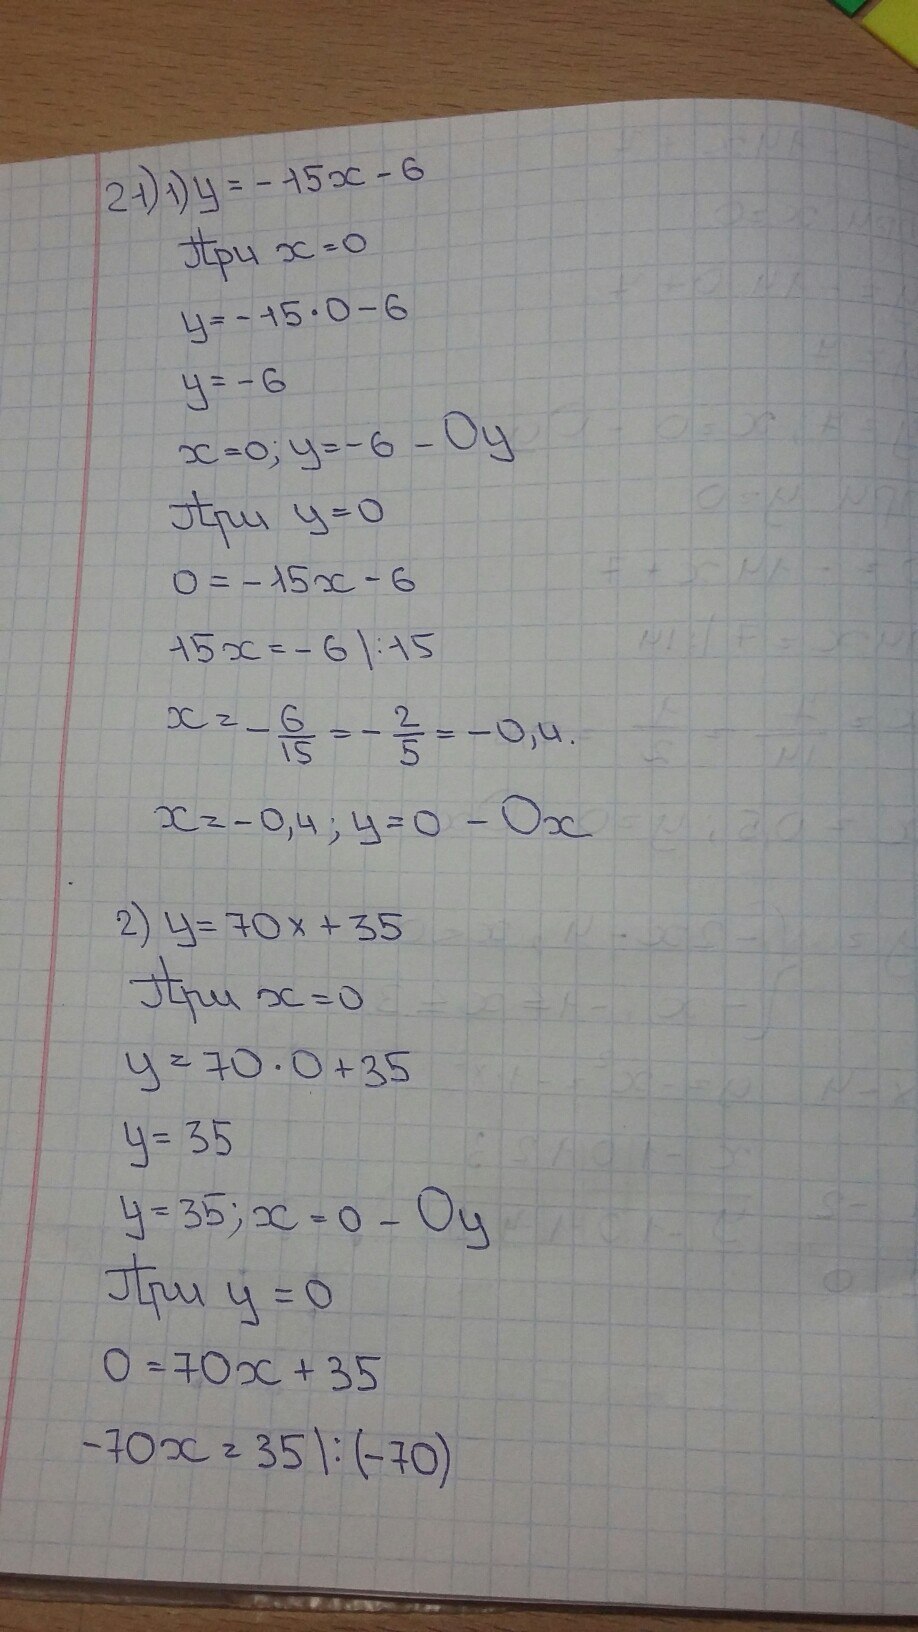 21) 1) y = -15x - 6
При x = 0
y = -15 · 0 - 6
y = -6
x = 0; y = -6 - Oy
При y = 0
0 = -15x - 6
15x = -6 |:15
x = -6/15 = -2/5 = -0,4.
x = -0,4; y = 0 - Ox
2) y = 70x + 35
При x = 0
y = 70 · 0 + 35
y = 35
y = 35; x = 0 - Oy
При y = 0
0 = 70x + 35
-70x = 35 |:(-70)